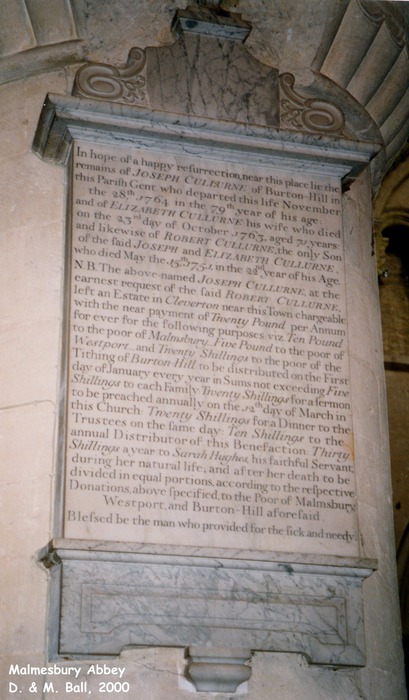 In hope of a happy resurrection, near this place lie the
remains of JOSEPH CULLURNE of Burton-Hill in
this Parish Gent. who departed this life November
the 28th 1764 in the 79th year of his age.
and of ELIZABETH CULLURNE his wife who died
on the 23rd day of October 1763, aged years:
and likewise of ROBERT CULLURNE, the only Son
of the said JOSEPH and ELIZABETH CULLURNE,
who died May the 1751, in the 22d year of his Age.
N.B. The above-named JOSEPH CULLURNE, at the
earnest request of the said ROBERT CULLURNE,
left an Estate in Cleverton near this Town chargeable
with the neat payment of Twenty Pound per Annum
for ever for the following purposes: viz. Ten Pound
to the poor of Malmsbury. Five Pound to the poor of
Westport. and Twenty Shillings to the poor of the
Tithing of Burton-Hill to be distributed on the First
day of January every year in Sums not exceeding Five
Shillings to each Family. Twenty Shillings for a sermon
to be preached annually on the 12th day of March in
this Church. Twenty Shillings for a Dinner to the
Trustees on the same day. Ten Shillings to the
annual Distributor of this Benefaction. Thirty
Shillings a year to Sarah Hughes, his faithful Servant,
during her natural life; and after her death to be
divided in equal portions, according to the respective
Donations, above specified, to the Poor of Malmsbury
Westport, and Burton-Hill aforesaid.
Blessed be the man who provided for the sick and needy.
Malmesbury Abbey
D. & M. Ball, 2000